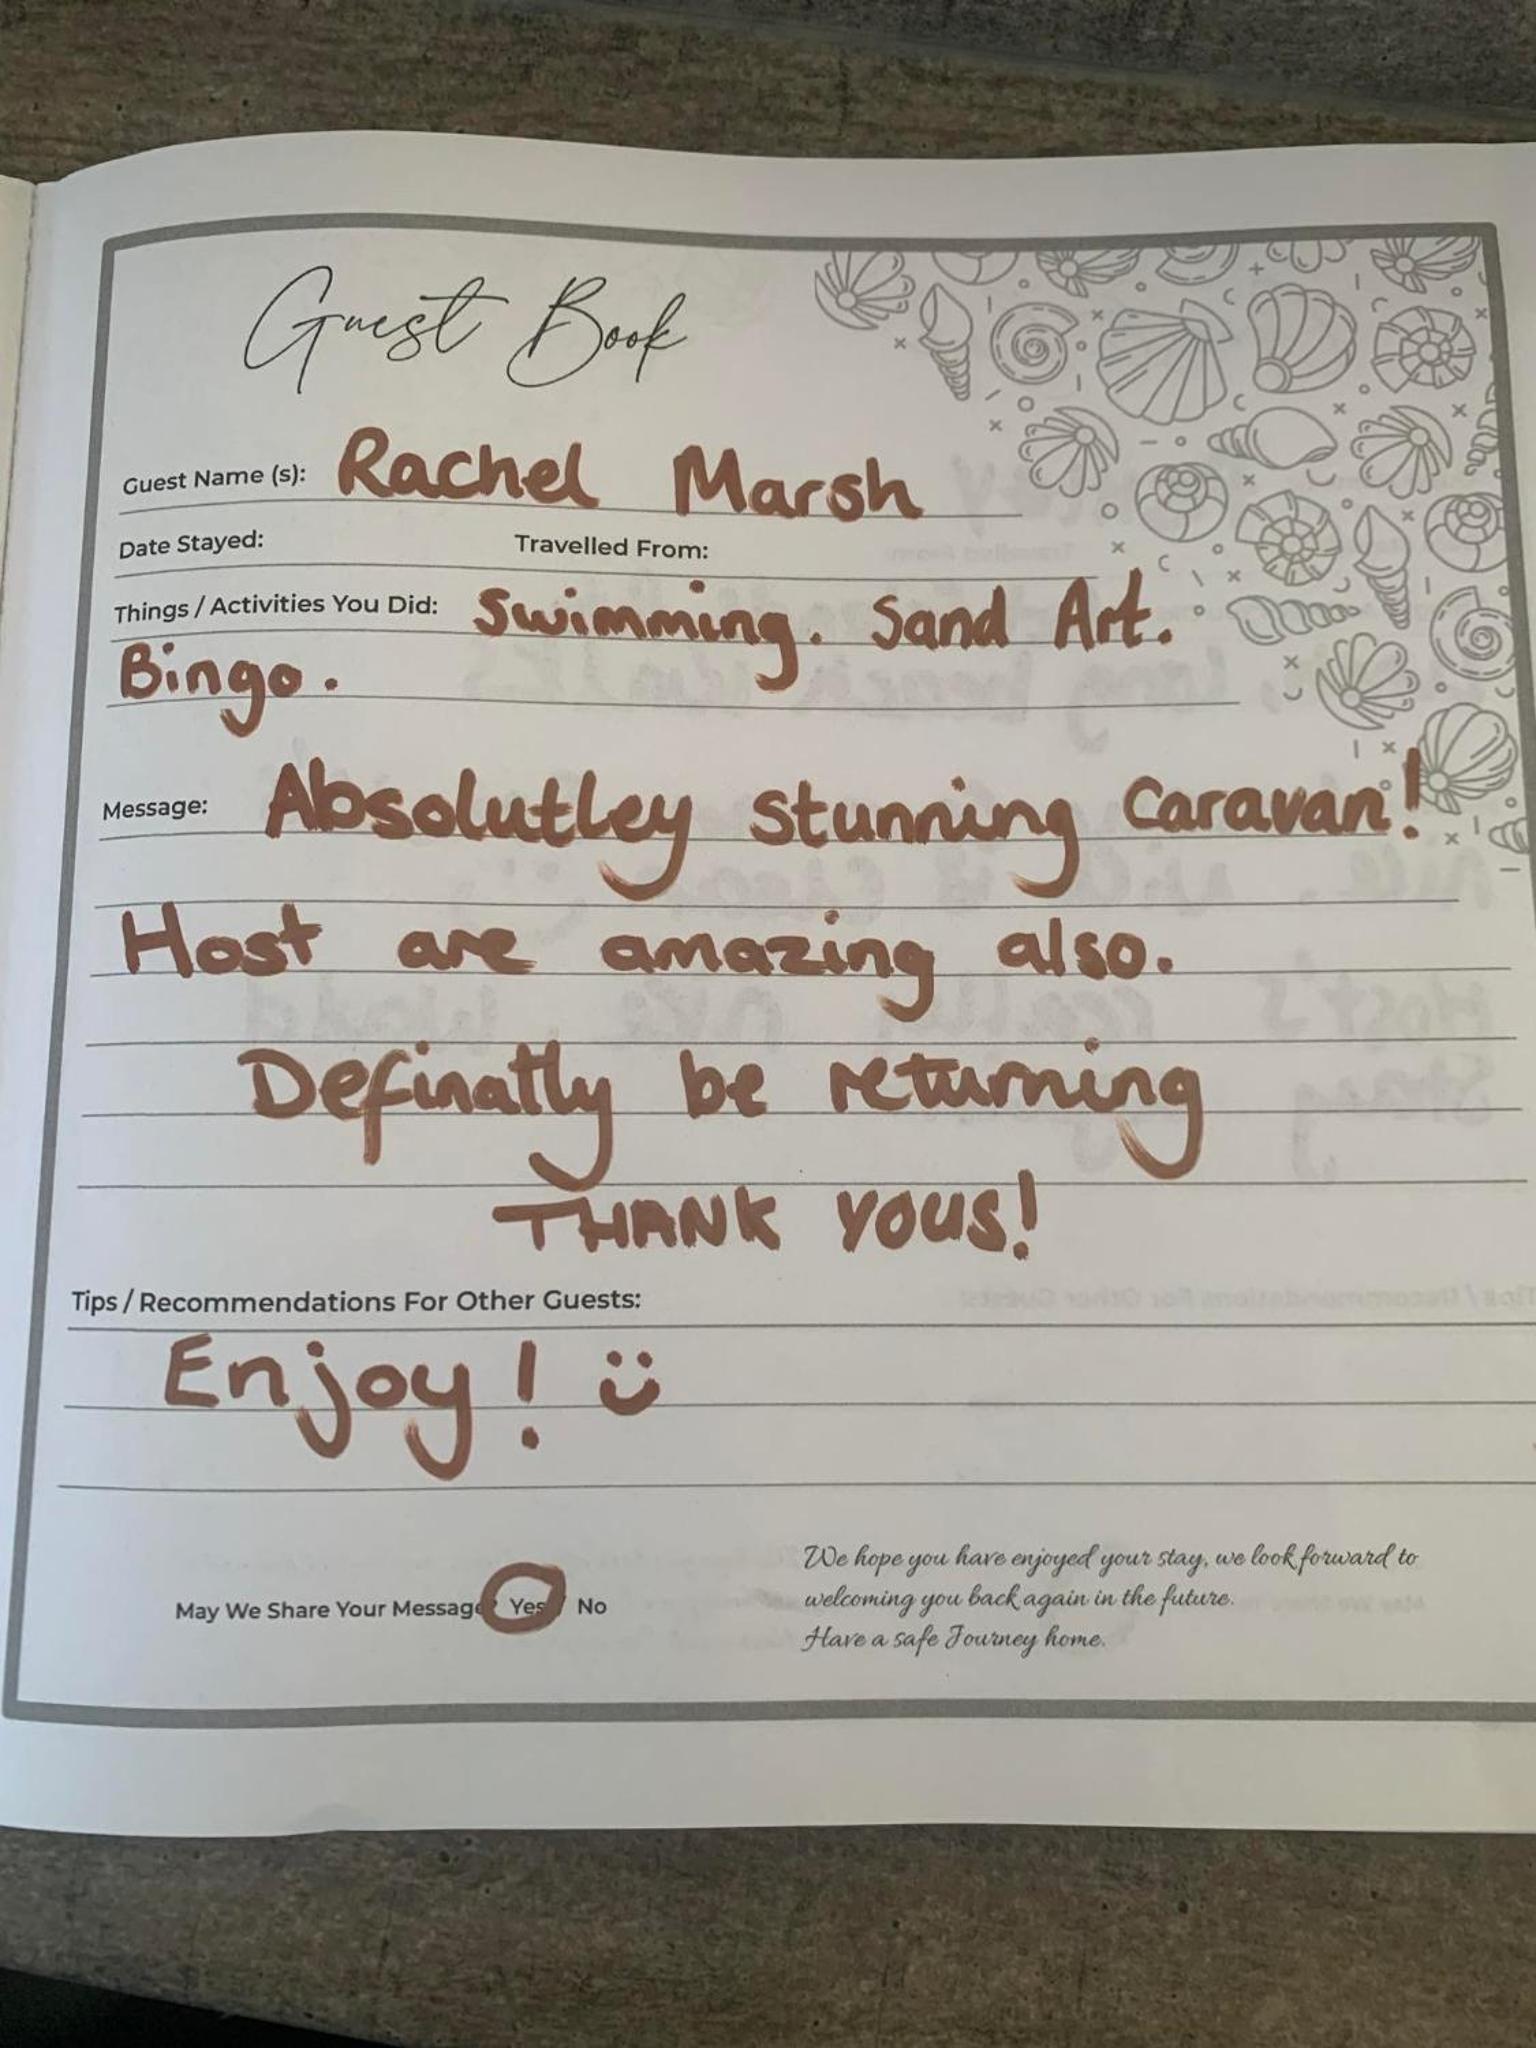 Guest Book
Guest Name (s): Rachel Marsh
Date Stayed: Travelled From:
Things / Activities You Did: Swimming. Sand Art.
Bingo.
Message: Absolutley stunning Caravan!
Host are amazing also.
Definatly be returning
THANK YOUS!
Tips / Recommendations For Other Guests:
Enjoy!
May We Share Your Message? Yes / No
We hope you have enjoyed your stay, we look forward to
welcoming you back again in the future.
Have a safe Journey home.